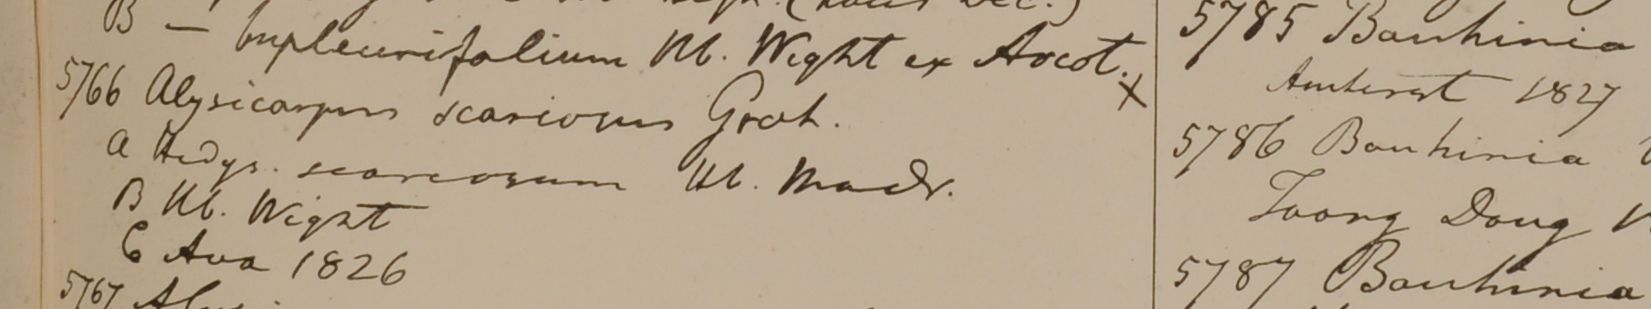 B — bupleurifolium Hb. Wight ex Arcot. x
5766 Alysicarpus scariosus Grah.
a Hedys. scariosum Hb. Madr.
B Hb. Wight
C Ava 1826
5767
5785 Bauhinia
Amherst 1827
5786 Bauhinia
Taong Dong
5787 Bauhinia